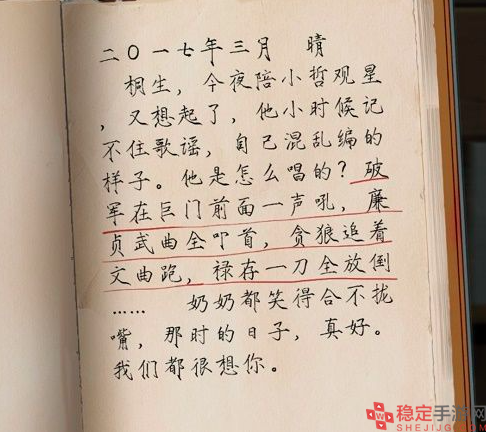 二〇一七年三月 晴
桐生，今夜陪小哲观星
，又想起了，他小时候记
不住歌谣，自己混乱编的
样子。他是怎么唱的？破
军在巨门前面一声吼，廉
贞武曲全叩首，贪狼追着
文曲跑，禄存一刀全放倒
…… 奶奶都笑得合不拢
嘴，那时的日子，真好。
我们都很想你。
稳定手游网
SHEJIJG.COM